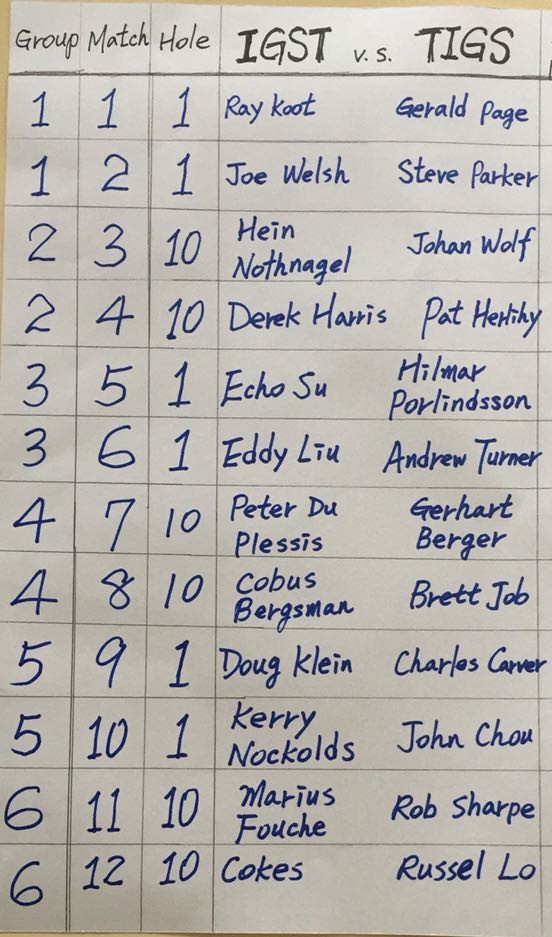 Group Match Hole IGST v.s. TIGS
1 1 1 Ray Koot Gerald Page
1 2 1 Joe Welsh Steve Parker
2 3 10 Hein Nothnagel Johan Wolf
2 4 10 Derek Harris Pat Herlihy
3 5 1 Echo Su Hilmar Porlindsson
3 6 1 Eddy Liu Andrew Turner
4 7 10 Peter Du Plessis Gerhart Berger
4 8 10 Cobus Bergsman Brett Job
5 9 1 Doug Klein Charles Carver
5 10 1 Kerry Nockolds John Chou
6 11 10 Marius Fouche Rob Sharpe
6 12 10 Cokes Russel Lo